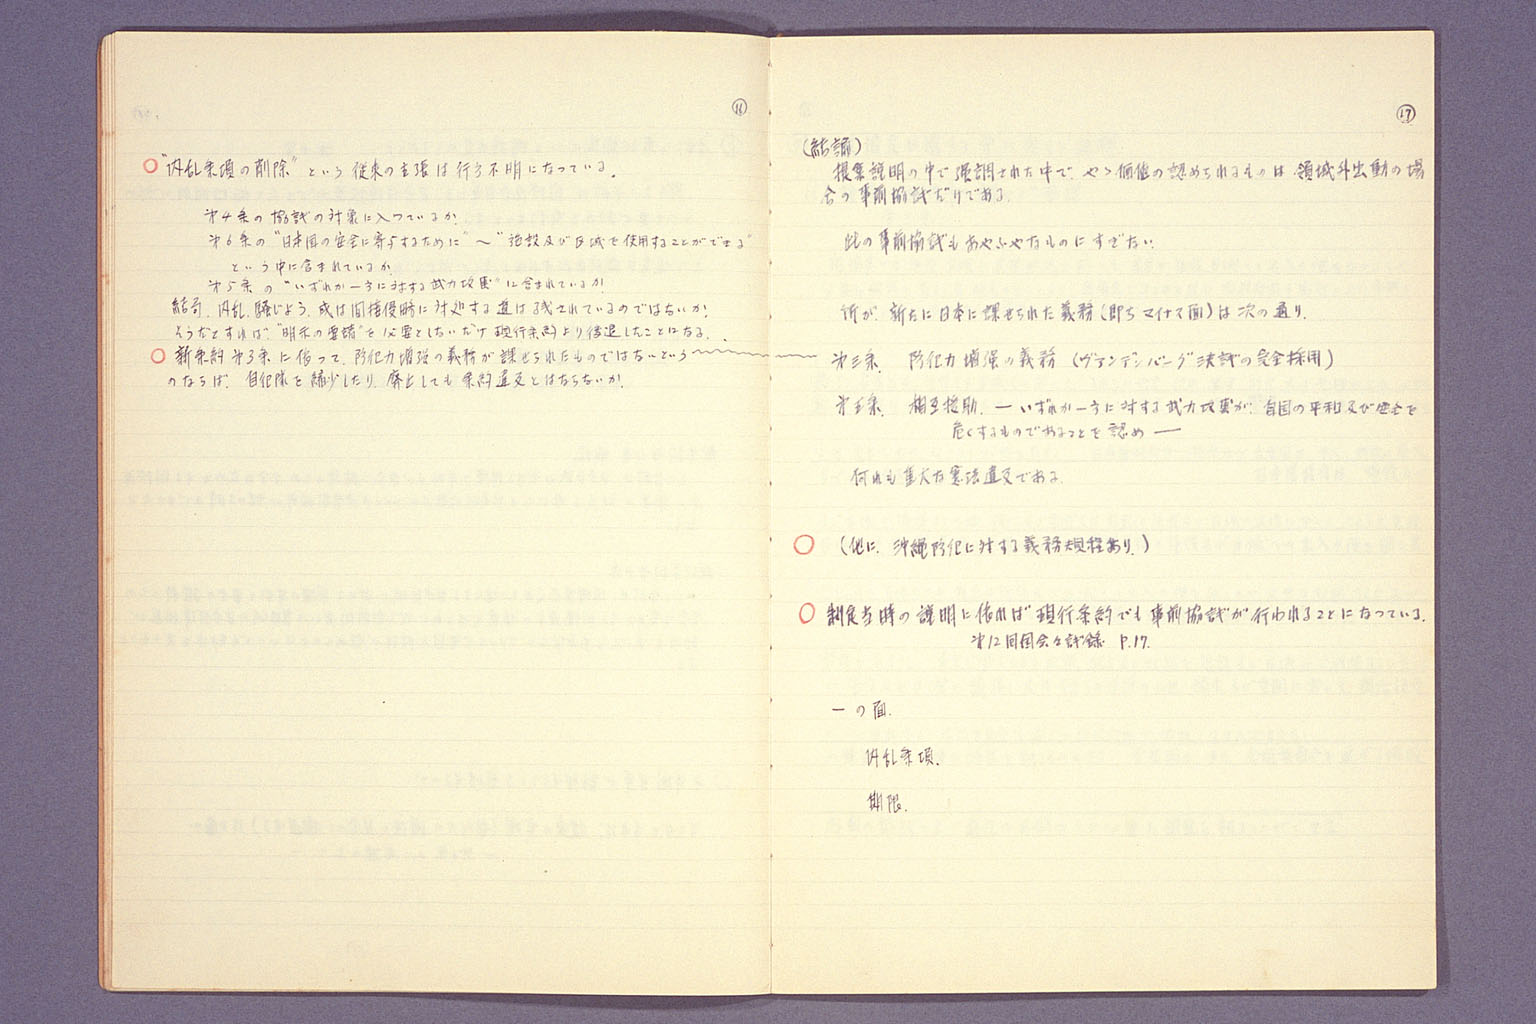 ⑯
○ "内乱条項の削除" という従来の主張は行方不明になっている。
第4条の協議の対象に入っているか
第6条の "日本国の安全に寄与するために" 〜 "施設及び区域を使用することができる"
という中に含まれているか
第5条の "いずれか一方に対する武力攻撃" に含まれているか
結局、内乱、騒じよう、或は間接侵略に対処する道は残されているのではないか。
そうだとすれば、"明示の要請" を必要としないだけ現行条約より後退したことになる。
○ 新条約第3条に依って、防衛力増強の義務が課せられたものではないという
のならば、自衛隊を縮少したり、廃止しても条約違反とはならないか。
⑰
(結論)
提案説明の中で強調された中で、やゝ価値の認められるものは、領域外出動の場
合の事前協議だけである。
此の事前協議もあやふやなものにすぎない。
所が、新たに日本に課せられた義務(即ちマイナス面)は次の通り。
第三条、 防衛力増強の義務 (ヴァンデンバーグ決議の完全採用)
第五条、 相互援助、— いずれか一方に対する武力攻撃が、自国の平和及び安全を
危くするものであることを認め —
何れも重大な憲法違反である。
○ (他に、沖縄防衛に対する義務規程あり。)
○ 制定当時の説明に依れば現行条約でも事前協議が行われることになつている。
第12回国会々議録 P.17.
一の面、
内乱条項、
期限、